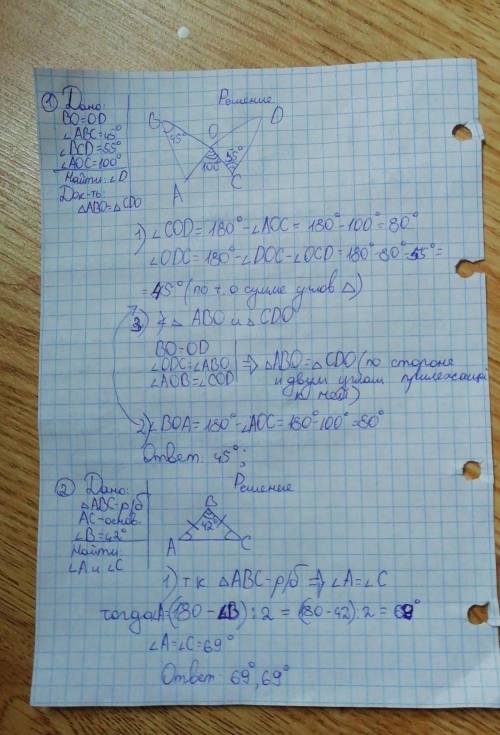 ① Дано: Решение
BO=OD
∠ABC=45°
∠BCD=55°
∠AOC=100°
Найти: ∠D
Док-ть:
△ABO=△CDO
B 45° O D
100° 55°
A C
1) ∠COD=180°-∠AOC=180°-100°=80°
∠ODC=180°-∠DOC-∠OCD=180°-80°-55°=
=45° (по т. о сумме углов △)
3) △ABO и △CDO
BO=OD
∠ODC=∠ABO ⇒ △ABO=△CDO (по стороне
∠AOB=∠COD и двум углам прилежащим
к ней)
2) ∠BOA=180°-∠AOC=180°-100°=80°
Ответ: 45°;
② Дано: Решение
△ABC-р/б
AC-основ.
∠B=42°
Найти:
∠A и ∠C
B
42°
A C
1) т.к △ABC-р/б ⇒ ∠A=∠C
тогда ∠A=(180-∠B):2=(180-42):2=69°
∠A=∠C=69°
Ответ: 69°, 69°